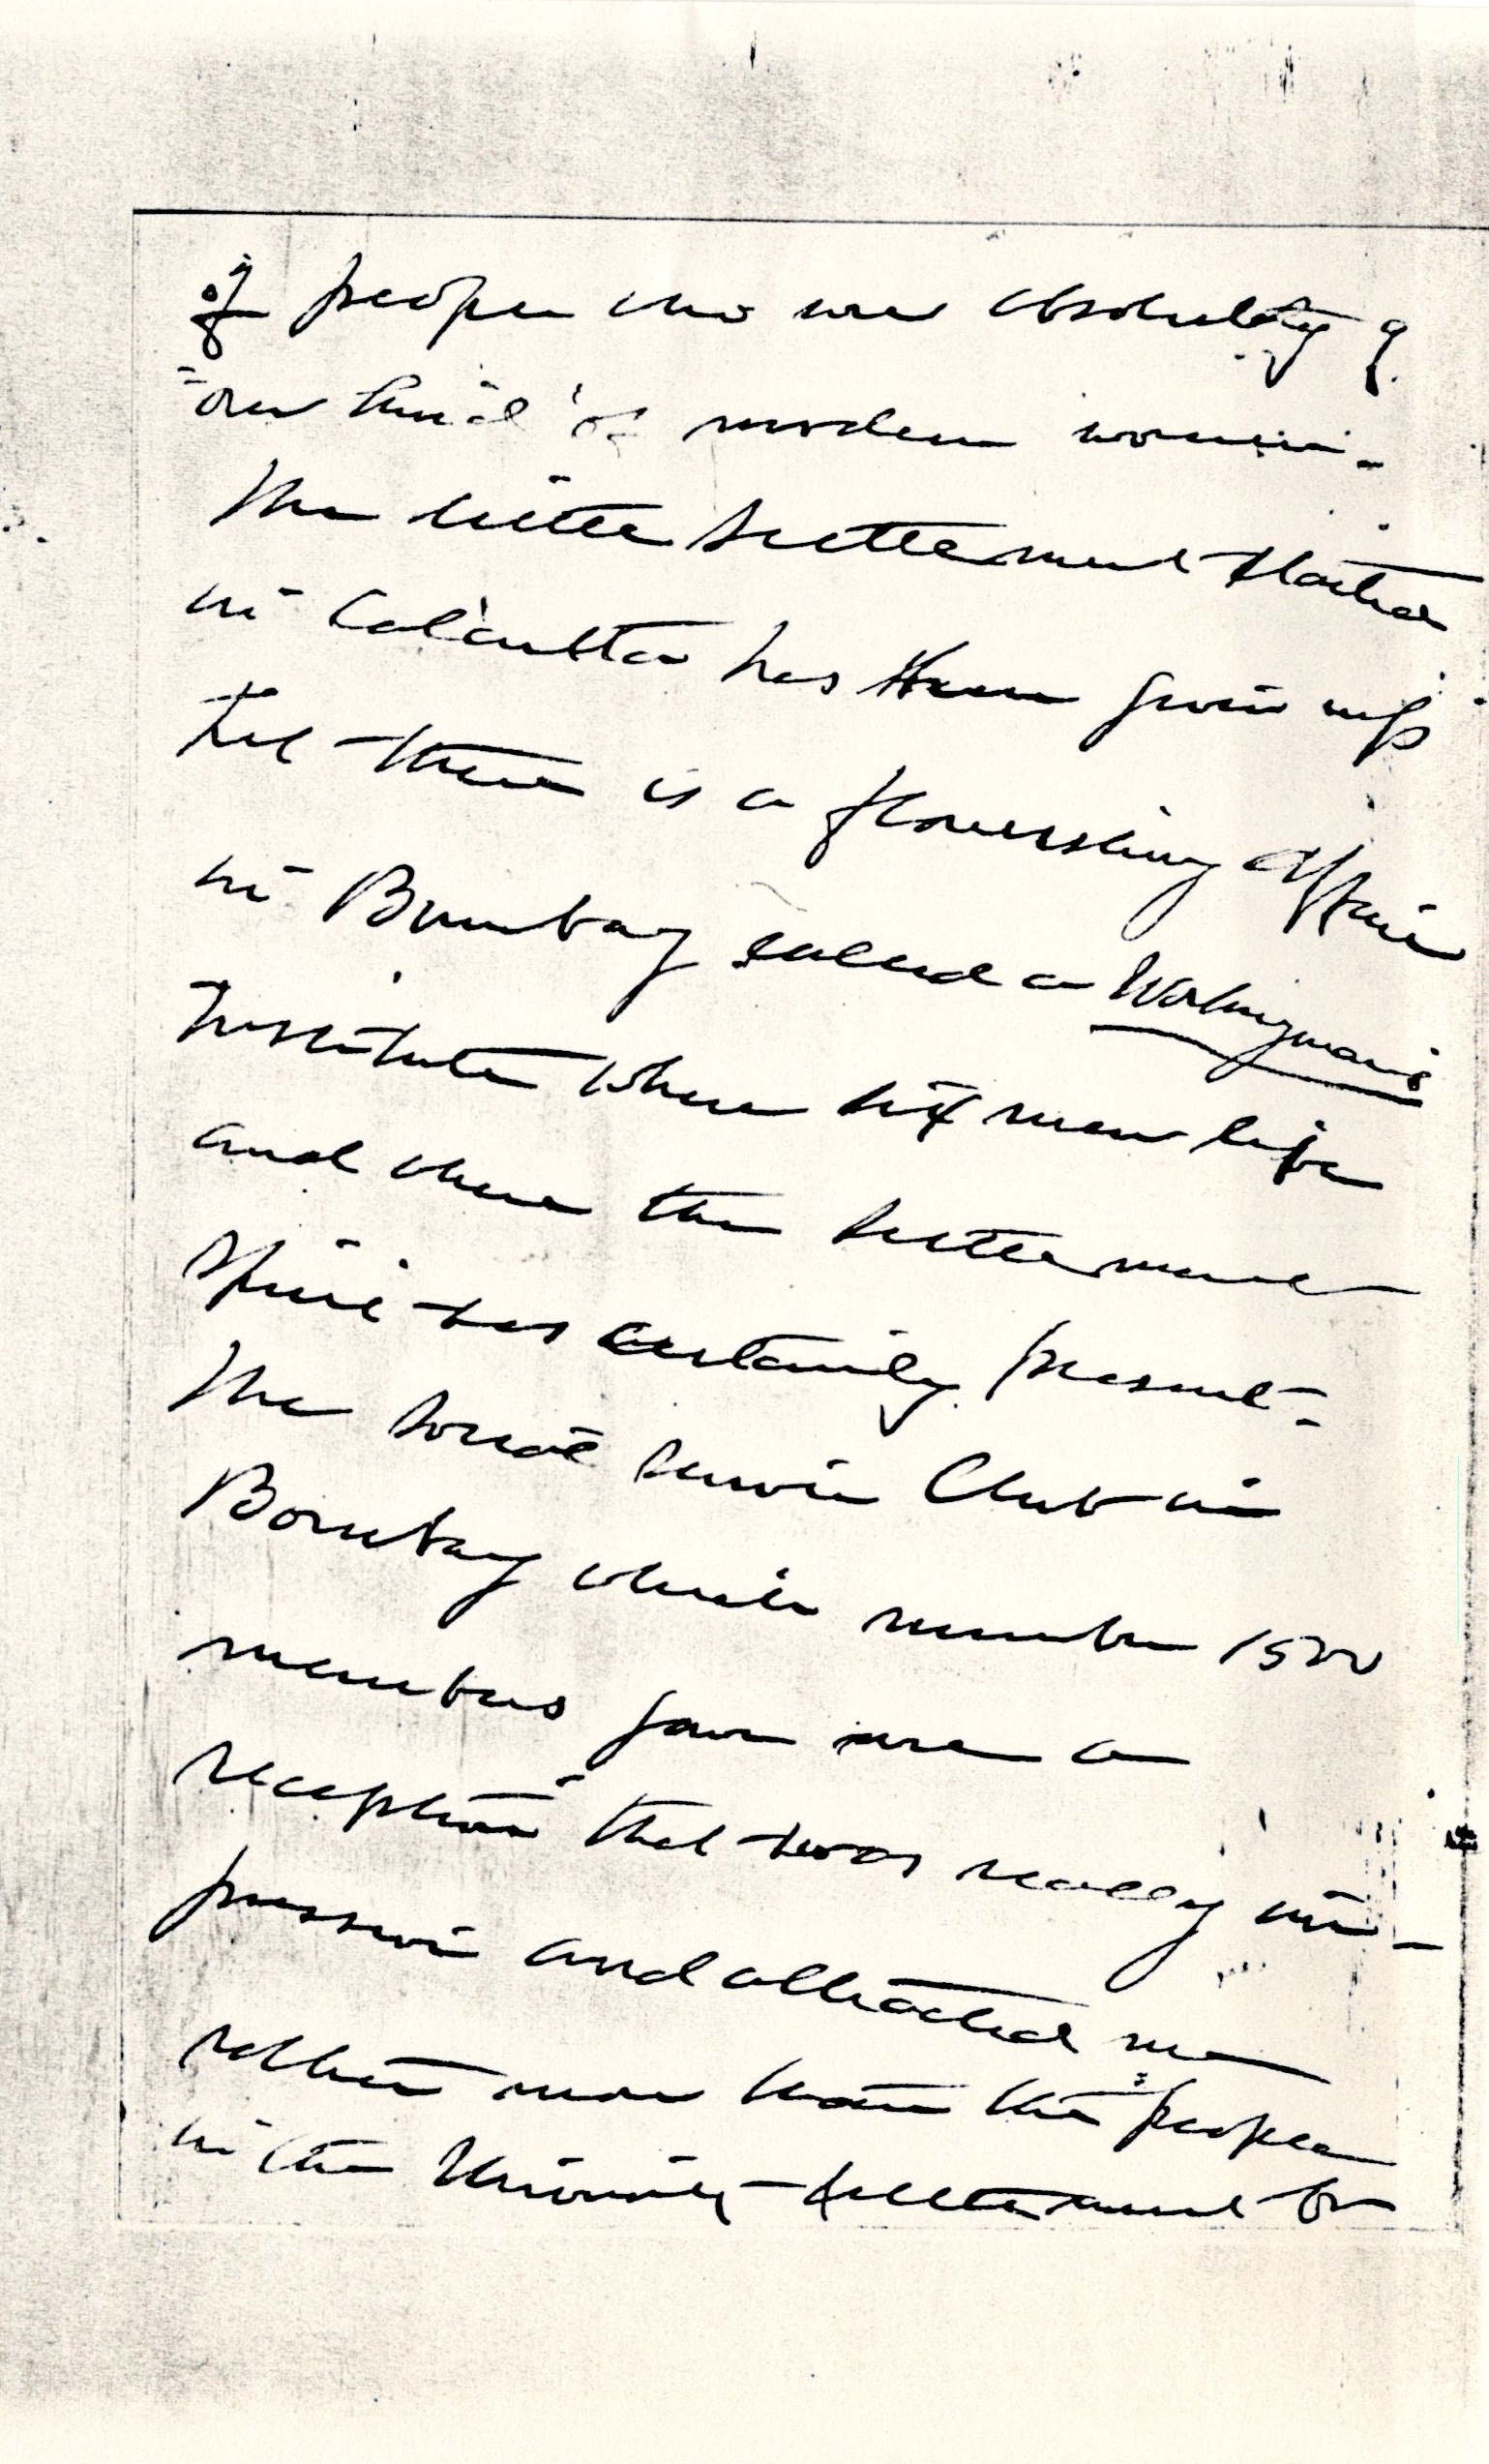 of people who were absolutely of
"our kind" of modern women -
The little Settlement started
in Calcutta has been given up
but there is a flourishing affair
in Bombay called a Workingman's
Institute where six men live
and where the Settlement
Spirit was certainly present -
The Social Service Club in
Bombay which number 1500
members gave me a
reception that was really im-
pressive and attracted me
rather more than the people
in the University Settlement for